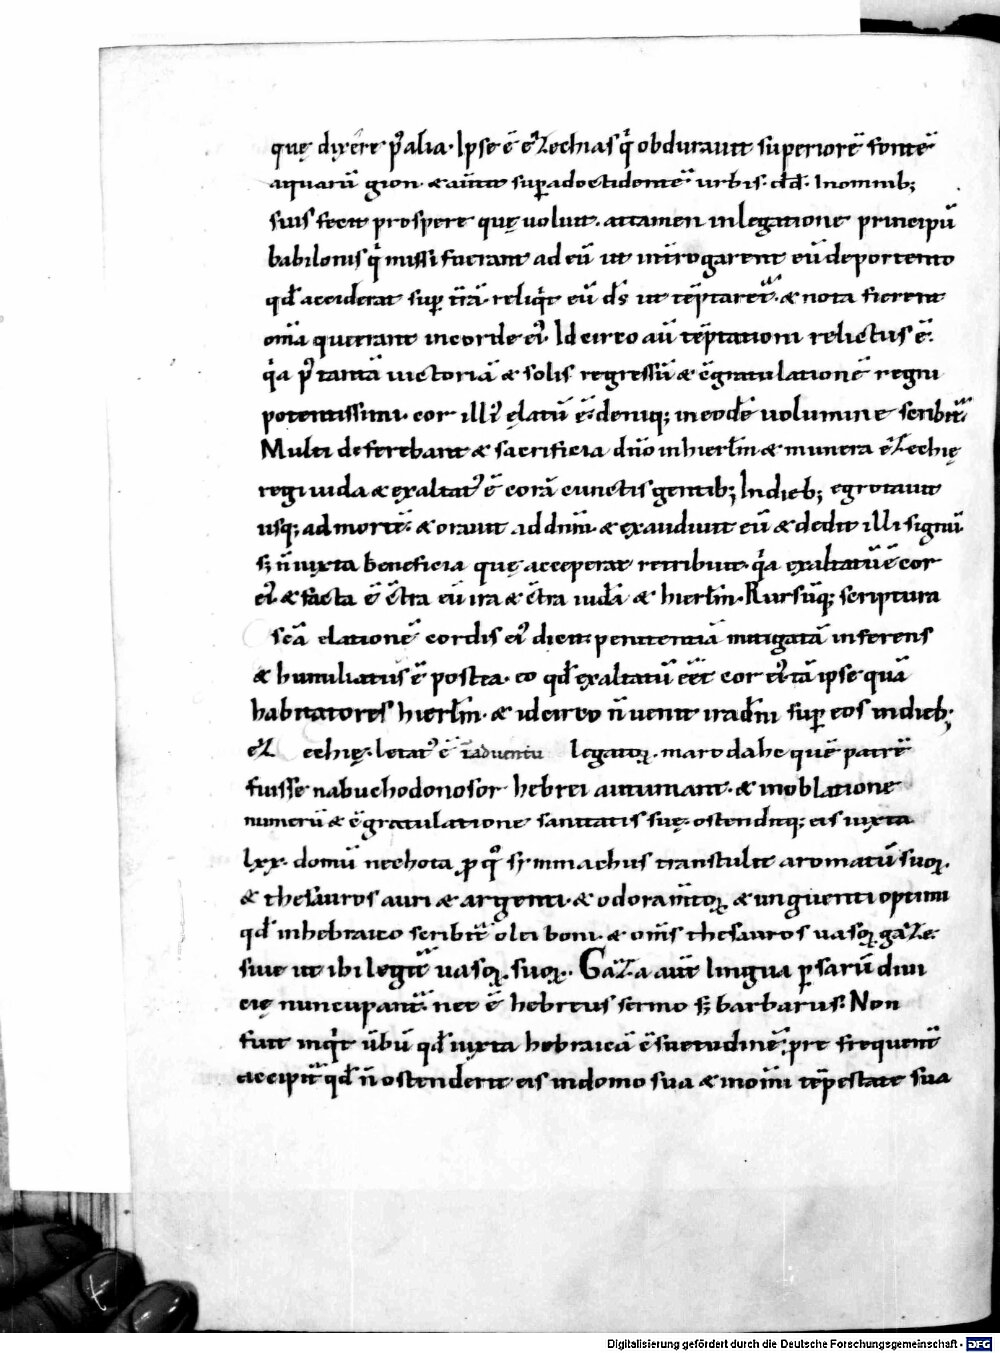 quę dixére p᷒ alia. Ipse ē ezechias qͥ obdurauit superiorē fontē
aquarū gion. & auertit sup ad occidentē urbis. dd. In omnib;
suis fecit prospere quę uoluit. attamen in legatione principū
babilonis qͥ missi fuerant ad eū ut int̄rogarent eū de portento
qđ acciderat sup trā. reliqͥt eū ds ut tēptaret᷑. & nota fierent
om̄ia que erant in corde ei᷒. Idcirco aū tēptationi relictus ē.
qͥa p᷒ tantā uictoriā & solis regressū & c̄gratulationē regni
potentissimi. cor illi᷒ elatū ē. deniq; in eodē uolumine scribit᷑
Multi deferebant & sacrificia dn̄o in hierl̄m & munera ezechię
regi iuda & exaltat᷒ ē corā cunctis gentib; In dieb; egrotauit
usq; ad mortē. & orauit ad dn̄m. & exaudiuit eū & dedit illi signū
s; n̄ iuxta beneficia quę acceperat retribuit. qͥa exaltatū ē cor
ei᷒. & facta ē c̄tra eū ira & c̄tra iudā & hierl̄m. Rursūq; scriptura
scā elationē cordis ei᷒ dicit penitentiā mitigatā inferens
& humiliatus ē postea. eo qđ exaltatū eēt cor ei᷒ tā ipse quā
habitatores hierl̄m. & idcirco n̄ uenit ira dn̄i sup eos in dieb;
ez echię. letat᷒ ē in aduentu legatoꝝ. marodahc quē patrē
fuisse nabuchodonosor hebrei autumant. & in oblatione
munerū & c̄gratulatione sanitatis suę. ostenditq; eis iuxta
lxx. domū nechota. ꝓ qͦ symmachus transtulit aromatū suoꝝ.
& thesauros auri & argenti. & odoram̄toꝝ. & unguenti optimi
qđ in hebraico scribit᷑ olei boni. & om̄s thesauros uasoꝝ gazę.
siue ut ibi legit᷑ uasoꝝ. suoꝝ. Gaza autē lingua ꝑsarū diui
cię nuncupant᷑. nec ē hebreus sermo s; barbarus. Non
fuit inqͥt ūbū qđ iuxta hebraicā c̄suetudinē. pre frequent᷑
accipit᷑ qđ n̄ ostenderit eis in domo sua & in om̄i tēpestate sua
Digitalisierung gefördert durch die Deutsche Forschungsgemeinschaft - DFG